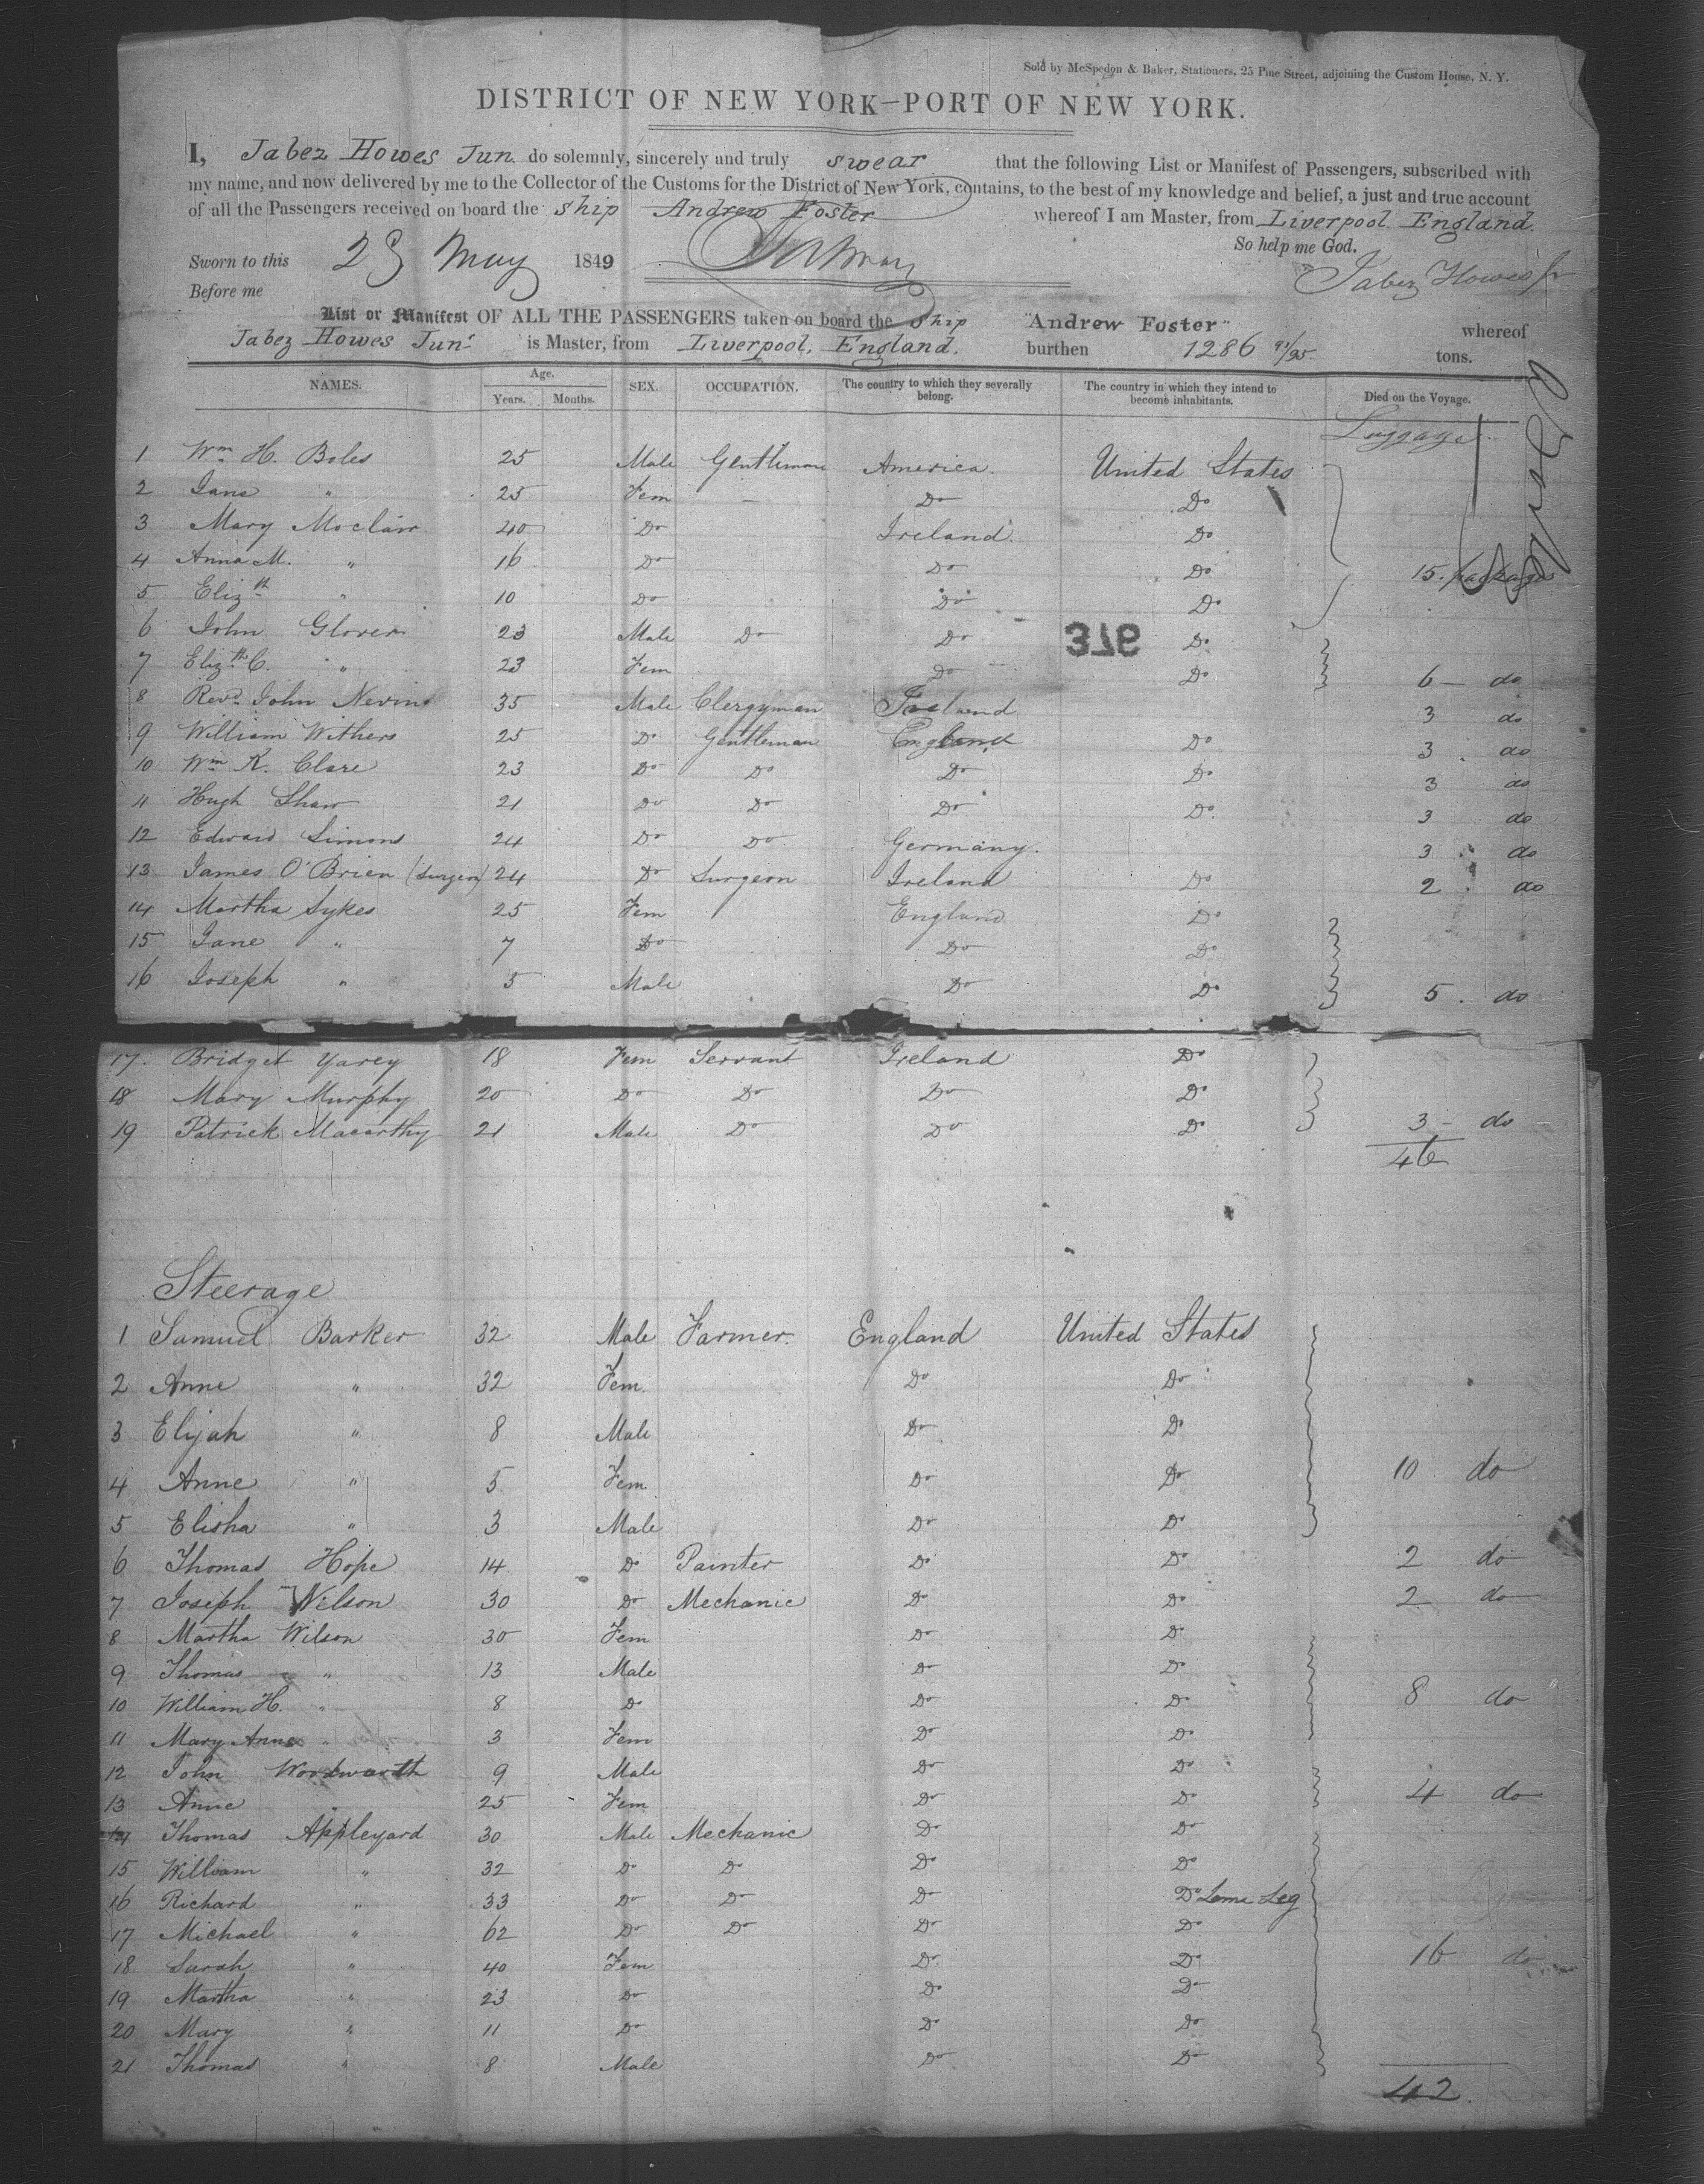 Sold by McSpedon & Baker, Stationers, 25 Pine Street, adjoining the Custom House, N. Y.
DISTRICT OF NEW YORK—PORT OF NEW YORK.
I, Jabez Howes Jun. do solemnly, sincerely and truly swear that the following List or Manifest of Passengers, subscribed with
my name, and now delivered by me to the Collector of the Customs for the District of New York, contains, to the best of my knowledge and belief, a just and true account
of all the Passengers received on board the ship Andrew Foster whereof I am Master, from Liverpool England.
So help me God.
Sworn to this May 1849
Jabez Howes Jr
Before me
List or Manifest OF ALL THE PASSENGERS taken on board the Ship "Andrew Foster" whereof
Jabez Howes Junr is Master, from Liverpool, England. burthen 1286 91/95 tons.
NAMES. Age. Years. Months. SEX. OCCUPATION. The country to which they severally belong. The country in which they intend to become inhabitants. Died on the Voyage.
Luggage
1 Wm H. Boles 25 Male Gentleman America. United States
2 Jane " 25 Fem — Do Do
3 Mary Moclair 40 Do Ireland. Do
4 Anna M. " 16 Do Do Do 15. packages
5 Elizth " 10 Do Do Do
6 John Glover 23 Male Do Do Do
376
7 Elizth C. " 23 Fem Do Do 6 — do
8 Revd John Nevins 35 Male Clergyman Ireland 3 do
9 William Withers 25 Do Gentleman England Do 3 do
10 Wm K. Clare 23 Do Do Do Do 3 do
11 Hugh Shaw 21 Do Do Do Do 3 do
12 Edward Simons 24 Do Do Germany. 3 do
13 James O'Brien (Surgeon) 24 Do Surgeon Ireland Do 2 do
14 Martha Sykes 25 Fem England Do
15 Jane " 7 Do Do Do
16 Joseph " 5 Male Do Do 5. do
17. Bridget Yarey 18 Fem Servant Ireland Do
18 Mary Murphy 20 Do Do Do Do
19 Patrick Macarthy 21 Male Do Do Do 3 — do
46
Steerage
1 Samuel Barker 32 Male Farmer. England United States
2 Anne " 32 Fem. Do Do
3 Elijah " 8 Male Do Do
4 Anne " 5 Fem Do Do 10 do
5 Elisha " 3 Male Do Do
6 Thomas Hope 14 Do Painter Do Do 2 do
7 Joseph Nelson 30 Do Mechanic Do Do 2 do
8 Martha Wilson 30 Fem Do Do
9 Thomas " 13 Male Do Do
10 William H. " 8 Do Do Do 8 do
11 Mary Anne " 3 Fem Do Do
12 John Woodwarth 9 Male Do Do
13 Anne " 25 Fem Do Do 4 do
14 Thomas Appleyard 30 Male Mechanic Do Do
15 William " 32 Do Do Do Do
16 Richard " 33 Do Do Do Do Lame Leg
17 Michael " 62 Do Do Do Do
18 Sarah " 40 Fem Do Do 16 do
19 Martha " 23 Do Do Do
20 Mary " 11 Do Do Do
21 Thomas " 8 Male Do Do
42.